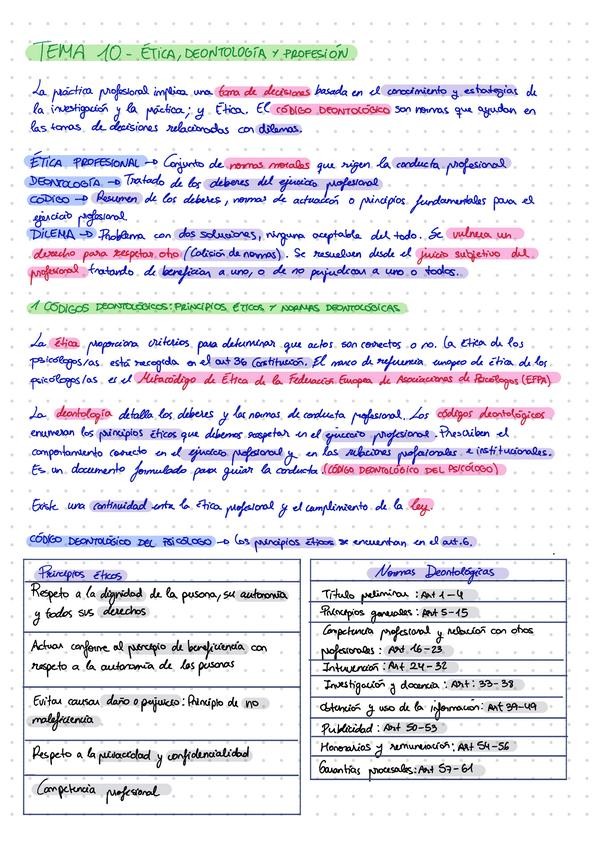 TEMA 10 - ÉTICA, DEONTOLOGÍA Y PROFESIÓN
La práctica profesional implica una toma de decisiones basada en el conocimiento y estrategias de
la investigación y la práctica; y Ética. El CÓDIGO DEONTOLÓGICO son normas que ayudan en
las tomas de decisiones relacionadas con dilemas.
ÉTICA PROFESIONAL → Conjunto de normas morales que rigen la conducta profesional
DEONTOLOGÍA → Tratado de los deberes del ejercicio profesional
CÓDIGO → Resumen de los deberes, normas de actuación o principios fundamentales para el
ejercicio profesional
DILEMA → Problema con dos soluciones, ninguna aceptable del todo. Se vulnera un
derecho para respetar otro (Colisión de normas). Se resuelven desde el juicio subjetivo del
profesional tratando de beneficiar a uno, o de no perjudicar a uno o todos.
1 CÓDIGOS DEONTOLÓGICOS: PRINCIPIOS ÉTICOS Y NORMAS DEONTOLÓGICAS
La ética proporciona criterios para determinar que actos son correctos o no. La Ética de los
psicólogos/as está recogida en el art 36 Constitución. El marco de referencia europeo de ética de los
psicólogos/as es el Metacódigo de Ética de la Federación Europea de Asociaciones de Psicólogos (EFPA)
La deontología detalla los deberes y las normas de conducta profesional. Los códigos deontológicos
enumeran los principios éticos que debemos respetar en el ejercicio profesional. Prescriben el
comportamiento correcto en el ejercicio profesional y en las relaciones profesionales e institucionales.
Es un documento formulado para guiar la conducta. (CÓDIGO DEONTOLÓGICO DEL PSICÓLOGO)
Existe una continuidad entre la ética profesional y el cumplimiento de la ley.
CÓDIGO DEONTOLÓGICO DEL PSICÓLOGO → Los principios Éticos se encuentran en el art.6.
Principios Éticos
Respeto a la dignidad de la persona, su autonomía
y todos sus derechos
Actuar conforme al principio de beneficiencia con
respeto a la autonomía de las personas
Evitar causar daño o perjuicio: Principio de no
maleficiencia
Respeto a la privacidad y confidencialidad
Competencia profesional
Normas Deontológicas
Título preliminar : Art 1-4
Principios generales : Art 5-15
Competencia profesional y relación con otros
profesionales : Art 16-23
Intervención : Art 24-32
Investigación y docencia : Art : 33-38
Obtención y uso de la información: Art 39-49
Publicidad : Art 50-53
Honorarios y remuneración: Art 54-56
Garantías procesales: Art 57-61